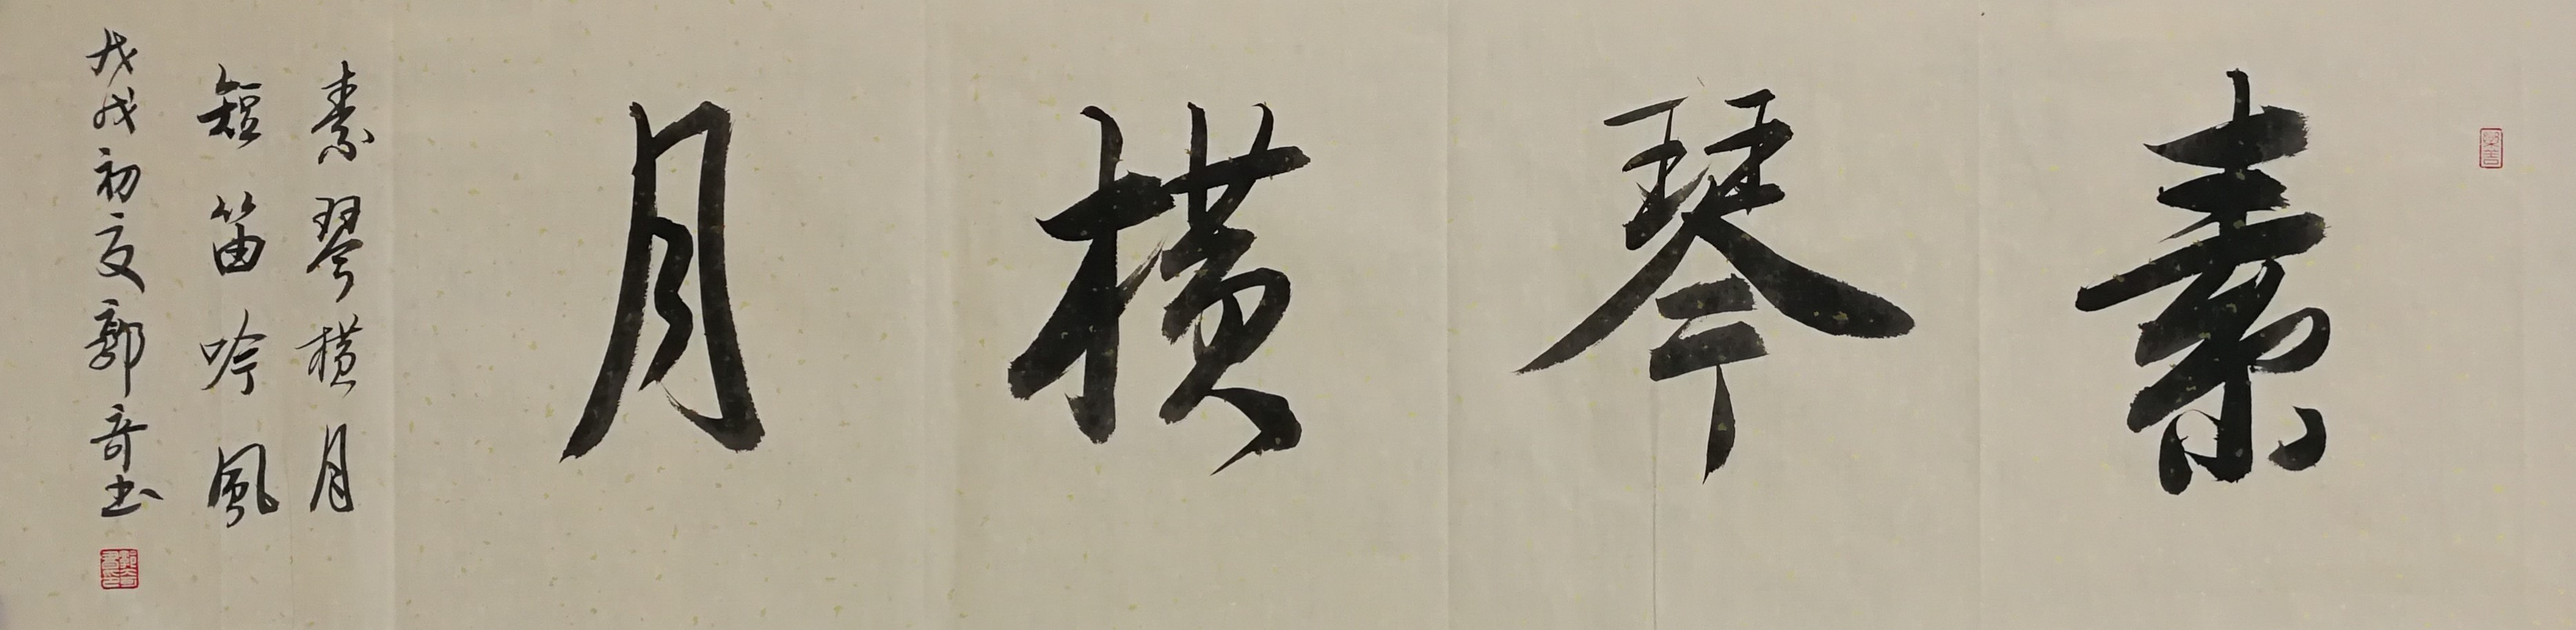 素琴橫月
素琴橫月
短笛吟風
戊戌初夏郭奇书